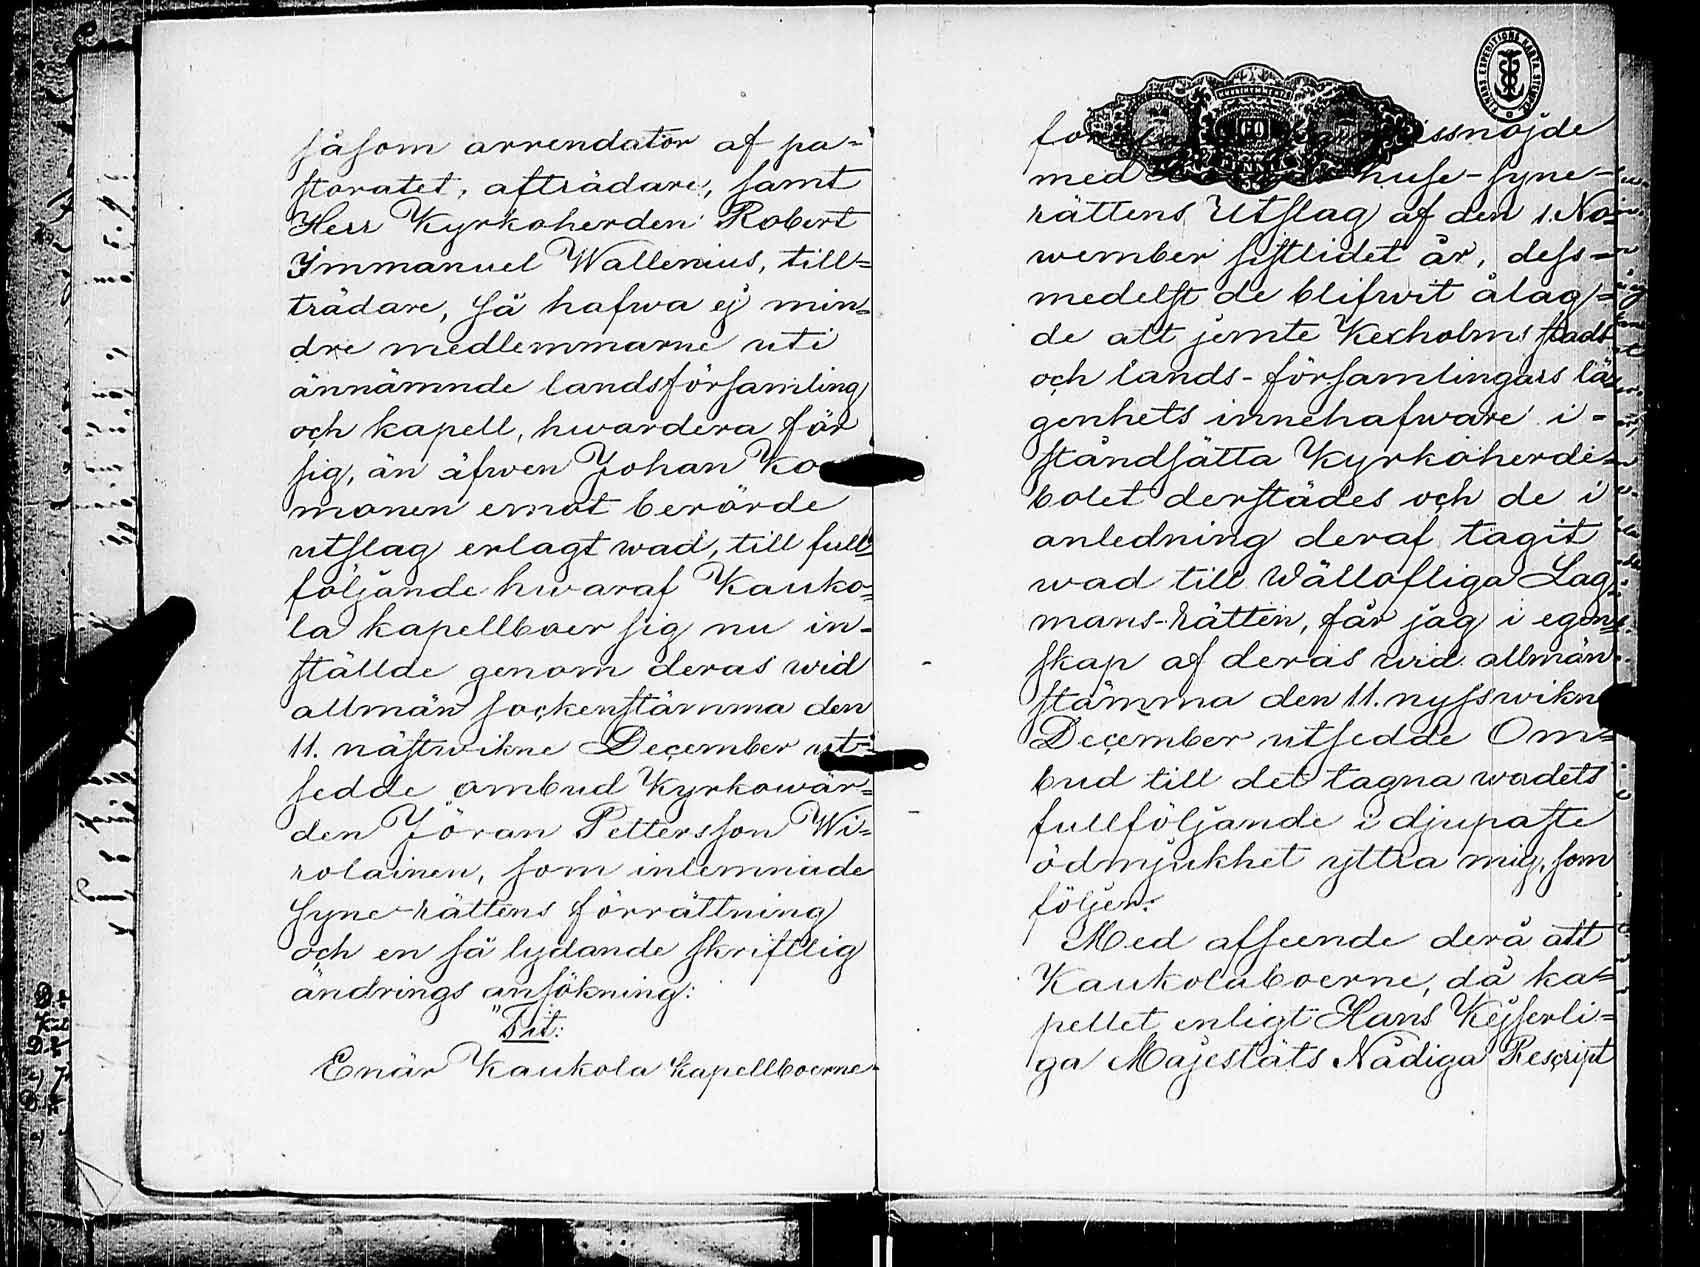 såsom arrendator af pa-
storatet, afträdare, samt
Herr Kyrkoherden Robert
Immanuel Wallenius, till-
trädare, så hafwa ej min-
dre medlemmarne uti
ännämnde landsförsamling
och kapell, hwardera för
sig, än äfwen Johan Ko
monen emot berörde
utslag erlagt wad, till full-
följande hwaraf Kauko-
la kapellboer sig nu in-
ställde genom deras wid
allmän sockenstämma den
11. nästwikne December ut-
sedde ombud Kyrkowär-
den Jöran Pettersson Wi-
rolainen, som inlemnade
syne-rättens förrättning
och en så lydande skriftlig
ändrings ansökning:
"Tit:
Enär Kaukola kapellboerne
för issnöjde
med huse-syne-
rättens Utslag af den 1. No-
wember sistlidet år, dess-
medelst de blifwit ålag-
de att jemte Kexholms stads
och lands-församlingars lä-
genhets innehafware i-
ståndsätta Kyrkoherde-
bolet derstädes och de i
anledning deraf tagit
wad till Wällofliga Lag-
mans-rätten, får jag i egen-
skap af deras wid allmän
stämma den 11. nysswikne
December utsedde Om-
bud till det tagna wadets
fullföljande i djupaste
ödmjukhet yttra mig, som
följer:
Med afseende derå att
Kaukolaboerne, då ka-
pellet enligt Hans Kejserli-
ga Majestäts Nådiga Rescript